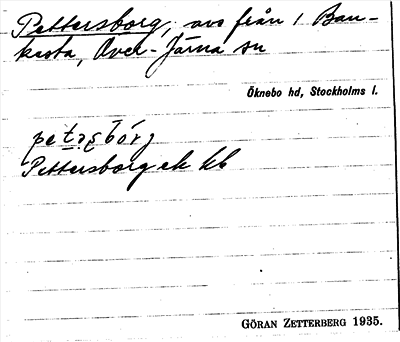 Pettersborg, avs från 1 Ban-
kesta, Över-Järna sn
Öknebo hd, Stockholms l.
Pettersborg ek kb
GÖRAN ZETTERBERG 1935.